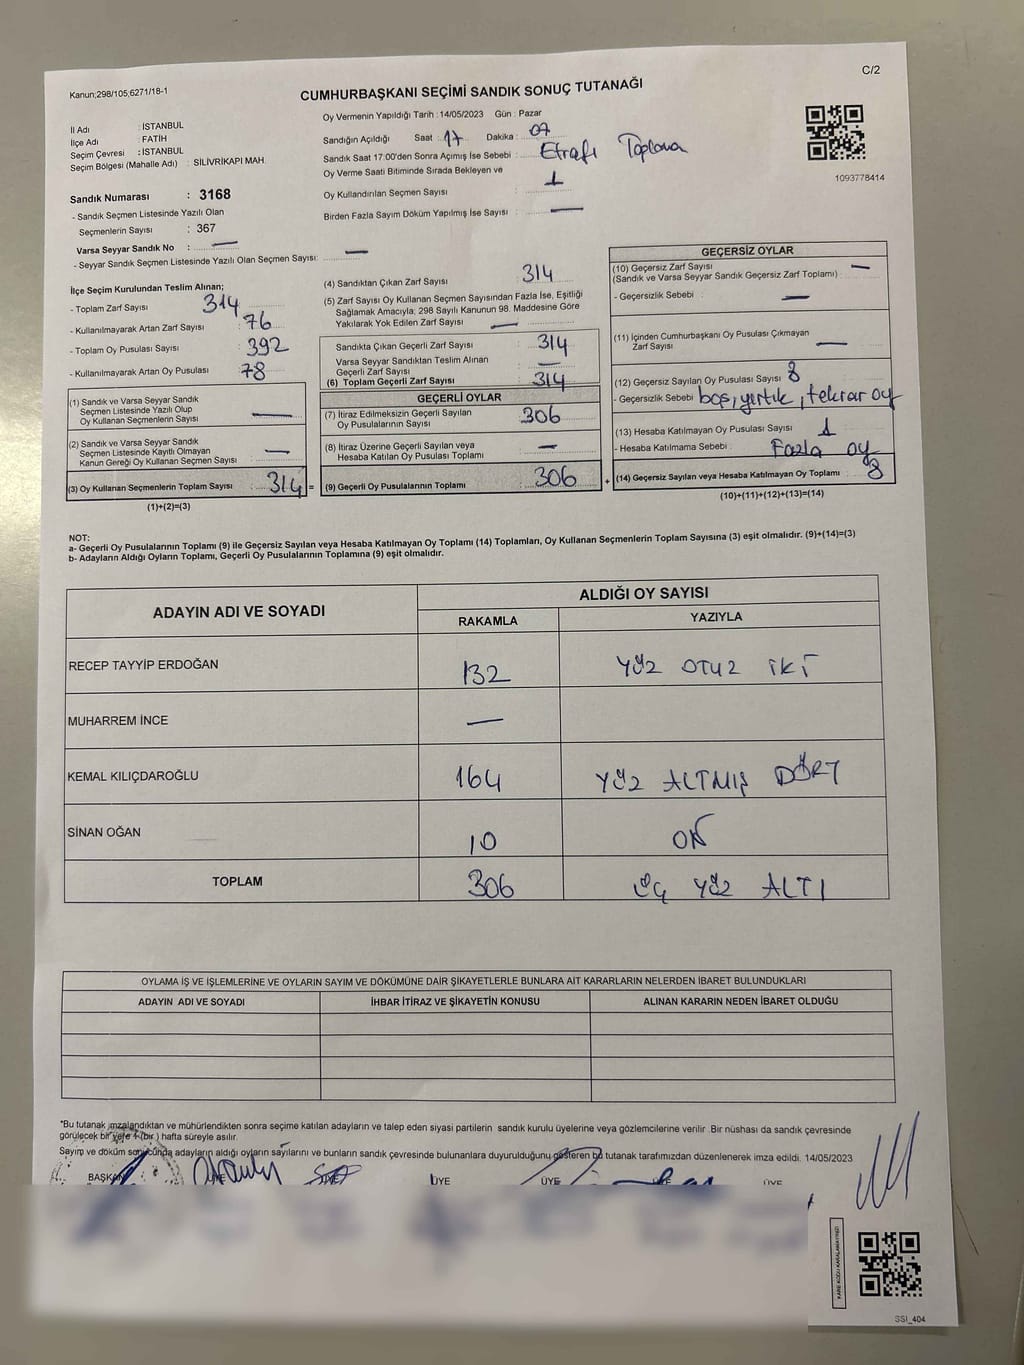 C/2
Kanun;298/105;6271/18-1
CUMHURBAŞKANI SEÇİMİ SANDIK SONUÇ TUTANAĞI
Oy Vermenin Yapıldığı Tarih :14/05/2023 Gün : Pazar
İl Adı : İSTANBUL
İlçe Adı : FATİH
Seçim Çevresi : İSTANBUL
Seçim Bölgesi (Mahalle Adı) : SİLİVRİKAPI MAH.
Sandığın Açıldığı Saat : 17 Dakika : 07
Sandık Saat 17:00'den Sonra Açımış İse Sebebi : Etrafı Toplama
Oy Verme Saati Bitiminde Sırada Bekleyen ve
Oy Kullandırılan Seçmen Sayısı : 1
Birden Fazla Sayım Döküm Yapılmış İse Sayısı : —
1093778414
Sandık Numarası : 3168
- Sandık Seçmen Listesinde Yazılı Olan
Seçmenlerin Sayısı : 367
Varsa Seyyar Sandık No : —
- Seyyar Sandık Seçmen Listesinde Yazılı Olan Seçmen Sayısı: —
İlçe Seçim Kurulundan Teslim Alınan;
- Toplam Zarf Sayısı 314
- Kullanılmayarak Artan Zarf Sayısı : 76
- Toplam Oy Pusulası Sayısı : 392
- Kullanılmayarak Artan Oy Pusulası : 78
(1) Sandık ve Varsa Seyyar Sandık
Seçmen Listesinde Yazılı Olup
Oy Kullanan Seçmenlerin Sayısı : —
(2) Sandık ve Varsa Seyyar Sandık
Seçmen Listesinde Kayıtlı Olmayan
Kanun Gereği Oy Kullanan Seçmen Sayısı : —
(3) Oy Kullanan Seçmenlerin Toplam Sayısı : 314 =
(1)+(2)=(3)
(4) Sandıktan Çıkan Zarf Sayısı : 314
(5) Zarf Sayısı Oy Kullanan Seçmen Sayısından Fazla İse, Eşitliği
Sağlamak Amacıyla; 298 Sayılı Kanunun 98. Maddesine Göre
Yakılarak Yok Edilen Zarf Sayısı : —
Sandıkta Çıkan Geçerli Zarf Sayısı : 314
Varsa Seyyar Sandıktan Teslim Alınan
Geçerli Zarf Sayısı : —
(6) Toplam Geçerli Zarf Sayısı : 314
GEÇERLİ OYLAR
(7) İtiraz Edilmeksizin Geçerli Sayılan
Oy Pusulalarının Sayısı : 306
(8) İtiraz Üzerine Geçerli Sayılan veya
Hesaba Katılan Oy Pusulası Toplamı : —
(9) Geçerli Oy Pusulalarının Toplamı : 306 +
GEÇERSİZ OYLAR
(10) Geçersiz Zarf Sayısı : —
(Sandık ve Varsa Seyyar Sandık Geçersiz Zarf Toplamı)
- Geçersizlik Sebebi : —
(11) İçinden Cumhurbaşkanı Oy Pusulası Çıkmayan
Zarf Sayısı : —
(12) Geçersiz Sayılan Oy Pusulası Sayısı : 8
- Geçersizlik Sebebi boş, yırtık, tekrar oy
(13) Hesaba Katılmayan Oy Pusulası Sayısı : 1
- Hesaba Katılmama Sebebi : Fazla oy
(14) Geçersiz Sayılan veya Hesaba Katılmayan Oy Toplamı : 8
(10)+(11)+(12)+(13)=(14)
NOT:
a- Geçerli Oy Pusulalarının Toplamı (9) ile Geçersiz Sayılan veya Hesaba Katılmayan Oy Toplamı (14) Toplamları, Oy Kullanan Seçmenlerin Toplam Sayısına (3) eşit olmalıdır. (9)+(14)=(3)
b- Adayların Aldığı Oyların Toplamı, Geçerli Oy Pusulalarının Toplamına (9) eşit olmalıdır.
ADAYIN ADI VE SOYADI
ALDIĞI OY SAYISI
RAKAMLA YAZIYLA
RECEP TAYYİP ERDOĞAN 132 YÜZ OTUZ İKİ
MUHARREM İNCE —
KEMAL KILIÇDAROĞLU 164 YÜZ ALTMIŞ DÖRT
SİNAN OĞAN 10 ON
TOPLAM 306 ÜÇ YÜZ ALTI
OYLAMA İŞ VE İŞLEMLERİNE VE OYLARIN SAYIM VE DÖKÜMÜNE DAİR ŞİKAYETLERLE BUNLARA AİT KARARLARIN NELERDEN İBARET BULUNDUKLARI
ADAYIN ADI VE SOYADI İHBAR İTİRAZ VE ŞİKAYETİN KONUSU ALINAN KARARIN NEDEN İBARET OLDUĞU
*Bu tutanak imzalandıktan ve mühürlendikten sonra seçime katılan adayların ve talep eden siyasi partilerin sandık kurulu üyelerine veya gözlemcilerine verilir .Bir nüshası da sandık çevresinde
görülecek bir yere 1 (bir ) hafta süreyle asılır.
Sayım ve döküm sonucunda adayların aldığı oyların sayılarını ve bunların sandık çevresinde bulunanlara duyurulduğunu gösteren bu tutanak tarafımızdan düzenlenerek imza edildi. 14/05/2023
BAŞKAN ÜYE ÜYE ÜYE ÜYE
SSİ_404